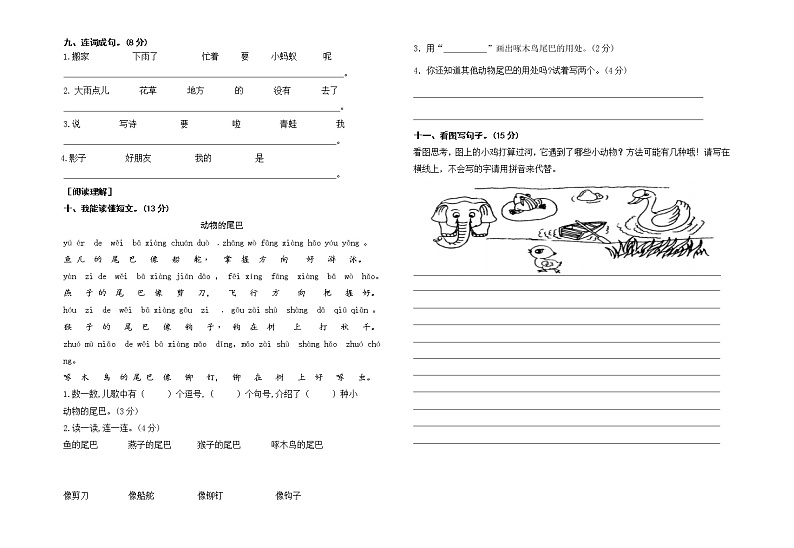 九、连词成句。(8分)
1.搬家 下雨了 忙着 要 小蚂蚁 呢
____________________________________________________________。
2. 大雨点儿 花草 地方 的 没有 去了
____________________________________________________________。
3.说 写诗 要 啦 青蛙 我
____________________________________________________________。
4.影子 好朋友 我的 是
____________________________________________________________。
[阅读理解]
十、我能读懂短文。(13分)
动物的尾巴
yú ér de wěi bā xiàng chuán duò ,zhǎng wò fāng xiàng hǎo yóu yǒng 。
鱼 儿 的 尾 巴 像 船 舵, 掌 握 方 向 好 游 泳。
yàn zi de wěi bā xiàng jiǎn dāo , fēi xíng fāng xiàng bǎ wò hǎo。
燕 子 的 尾 巴 像 剪 刀, 飞 行 方 向 把 握 好。
hóu zi de wěi bā xiàng gōu zi ,gōu zài shù shàng dǎ qiū qiān 。
猴 子 的 尾 巴 像 钩 子, 钩 在 树 上 打 秋 千。
zhuó mù niǎo de wěi bā xiàng mǎo dīng,mǎo zài shù shàng hǎo zhuó chó
ng。
啄 木 鸟 的 尾 巴 像 铆 钉, 铆 在 树 上 好 啄 虫。
1.数一数,儿歌中有( )个逗号,( )个句号,介绍了( )种小
动物的尾巴。(3分)
2.读一读,连一连。(4分)
鱼的尾巴 燕子的尾巴 猴子的尾巴 啄木鸟的尾巴
像剪刀 像船舵 像铆钉 像钩子
3. 用“__________”画出啄木鸟尾巴的用处。(2分)
4. 你还知道其他动物尾巴的用处吗?试着写两个。(4分)
十一、看图写句子。(15分)
看图思考,图上的小鸡打算过河,它遇到了哪些小动物?方法可能有几种哦!请写在
横线上,不会写的字请用拼音来代替。